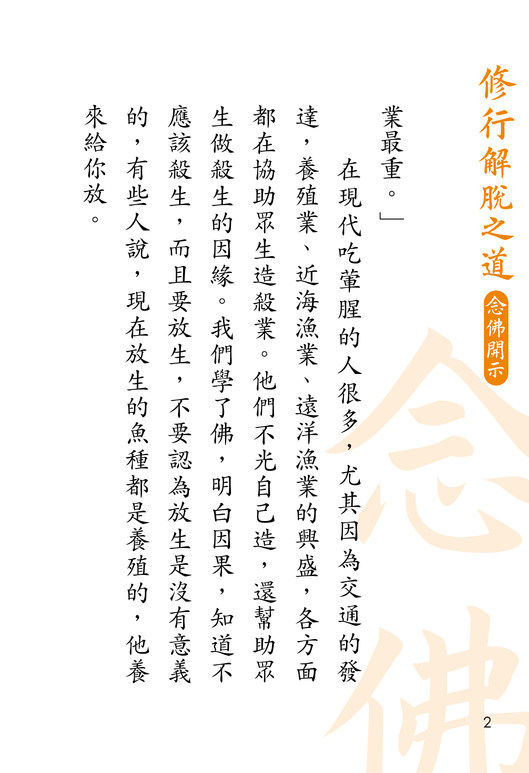 修行解脫之道
念佛開示
業最重。」
在現代吃葷腥的人很多，尤其因為交通的發
達，養殖業、近海漁業、遠洋漁業的興盛，各方面
都在協助眾生造殺業。他們不光自己造，還幫助眾
生做殺生的因緣。我們學了佛，明白因果，知道不
應該殺生，而且要放生，不要認為放生是沒有意義
的，有些人說，現在放生的魚種都是養殖的，他養
來給你放。
念佛
2